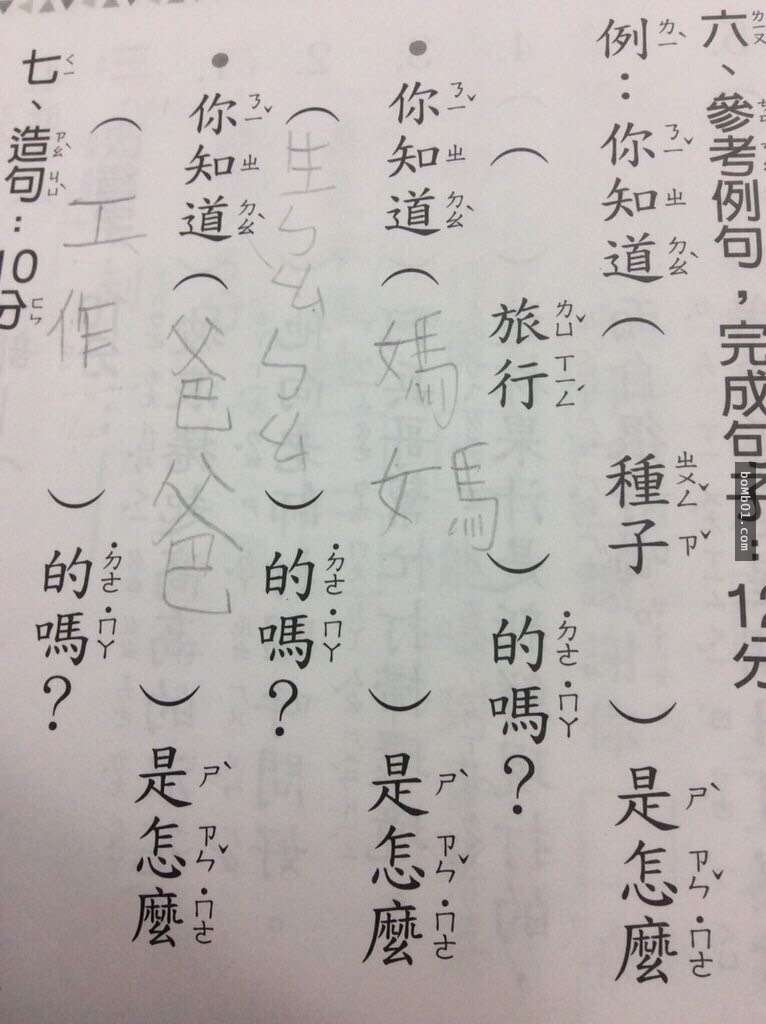 六、參考例句，完成句子：12分
例：你知道（種子）是怎麼
（旅行）的嗎？
•你知道（媽媽）是怎麼
（生ㄅㄠㄅㄠ）的嗎？
•你知道（爸爸）是怎麼
（工作）的嗎？
七、造句：10分
bomb01.com